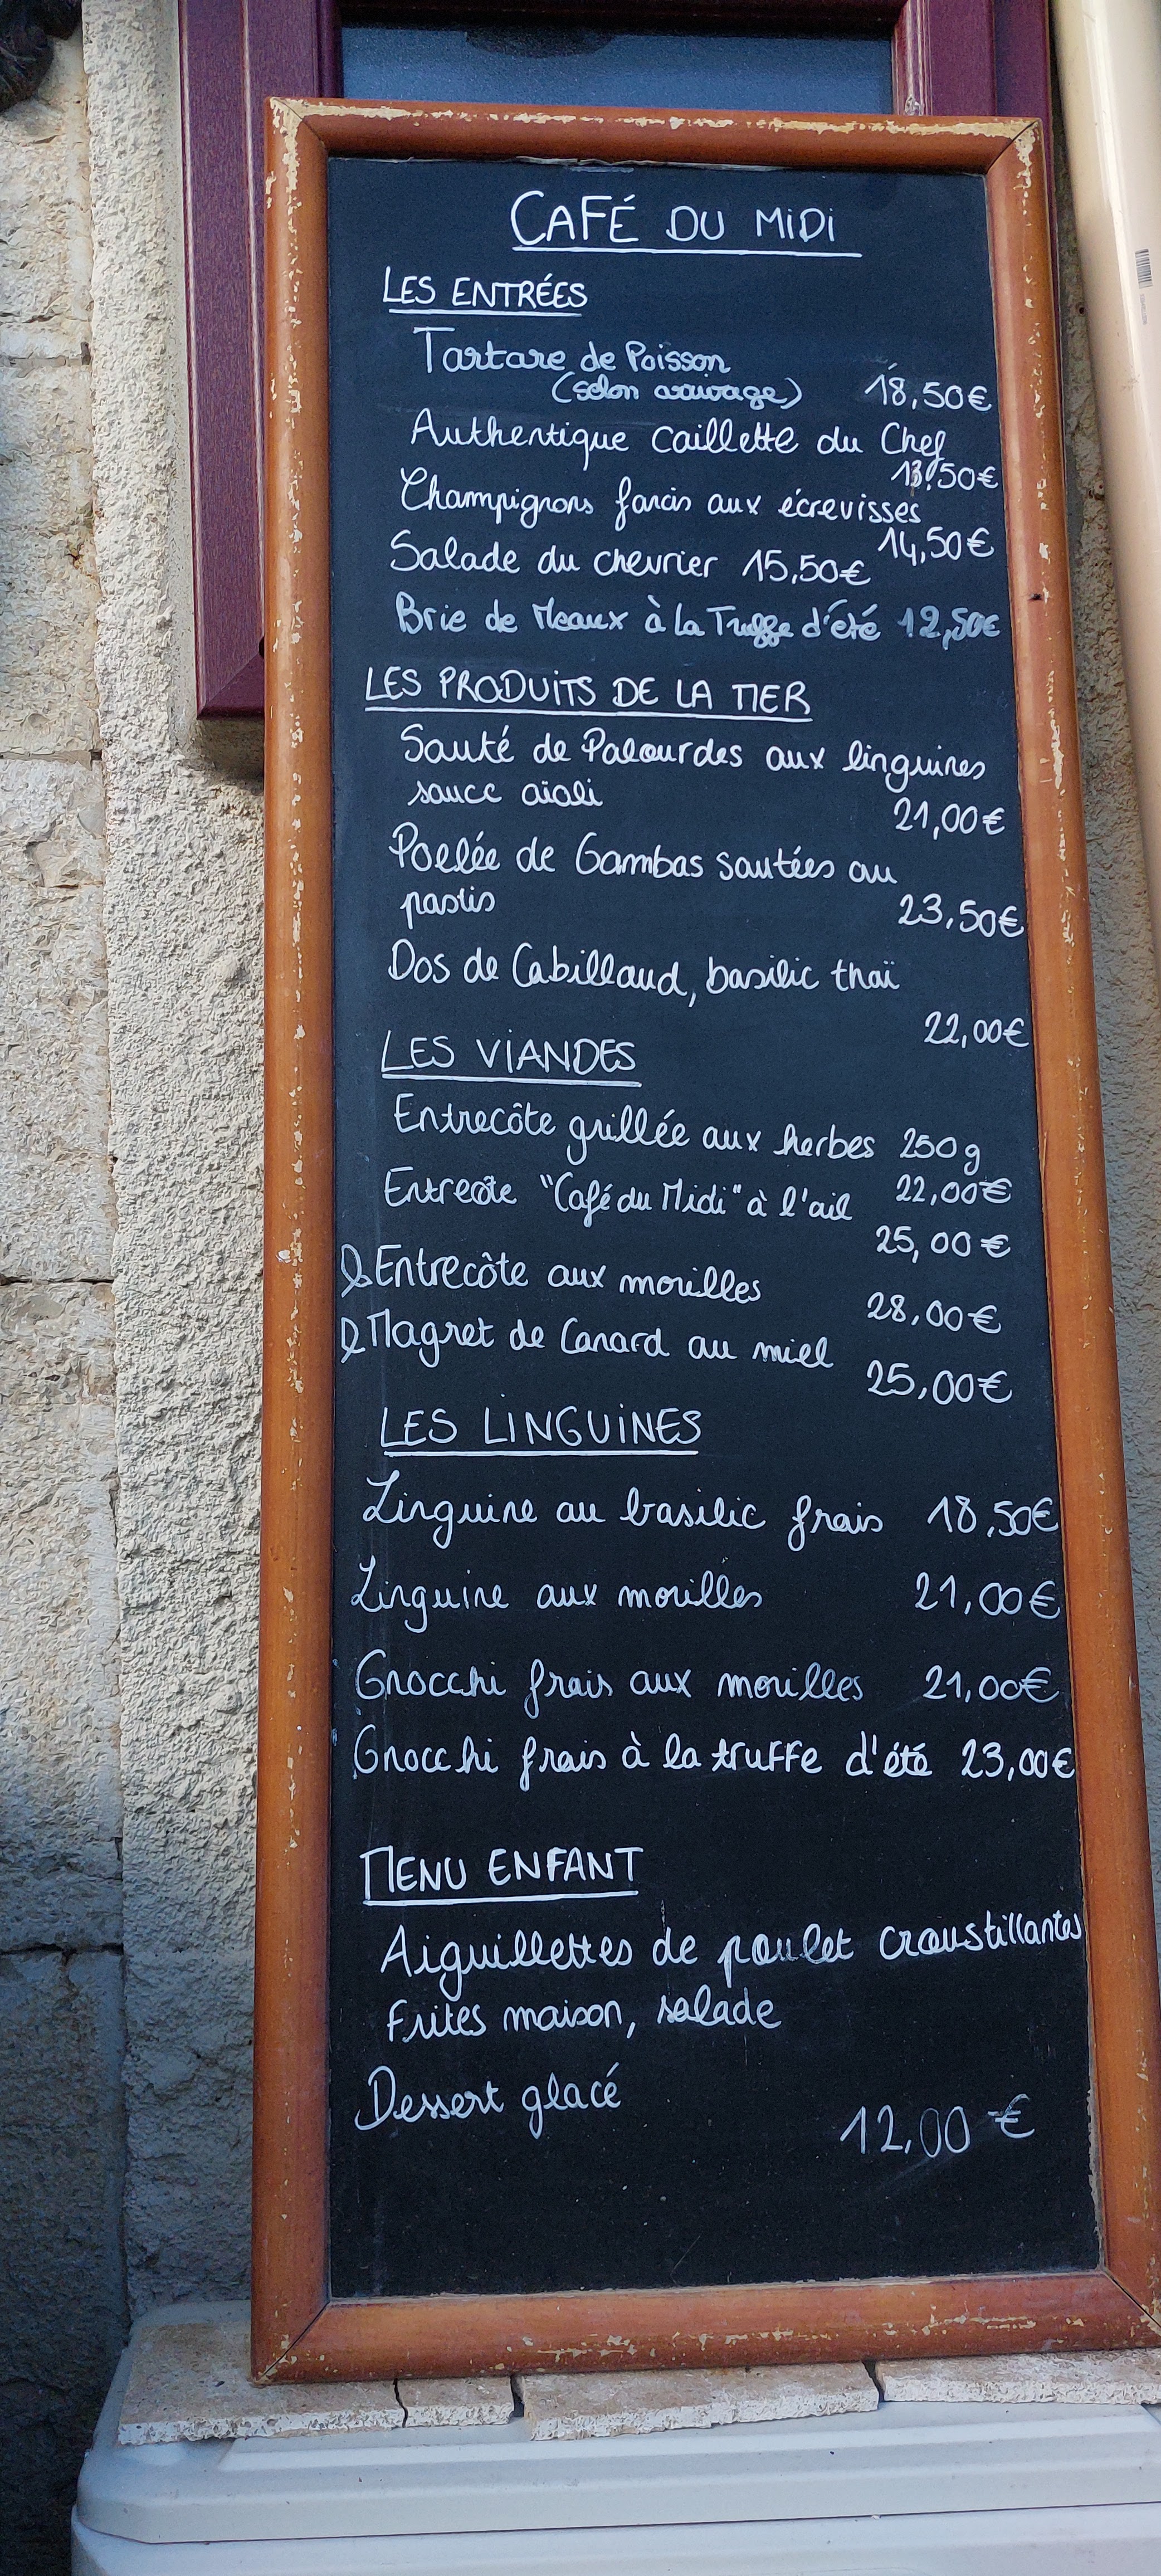 CAFÉ DU MIDI
LES ENTRÉES
Tartare de Poisson
(selon arrivage) 18,50€
Authentique caillette du Chef
13,50€
Champignons farcis aux écrevisses
14,50€
Salade du chevrier 15,50€
Brie de Meaux à la Truffe d'été 12,50€
LES PRODUITS DE LA MER
Sauté de Palourdes aux linguines
sauce aïoli 21,00€
Poelée de Gambas sautées au
pastis 23,50€
Dos de Cabillaud, basilic thaï
22,00€
LES VIANDES
Entrecôte grillée aux herbes 250g
22,00€
Entrecôte "Café du Midi" à l'ail
25,00€
Entrecôte aux morilles
28,00€
Magret de Canard au miel
25,00€
LES LINGUINES
Linguine au basilic frais 18,50€
Linguine aux morilles 21,00€
Gnocchi frais aux morilles 21,00€
Gnocchi frais à la truffe d'été 23,00€
MENU ENFANT
Aiguillettes de poulet croustillantes
Frites maison, salade
Dessert glacé
12,00 €